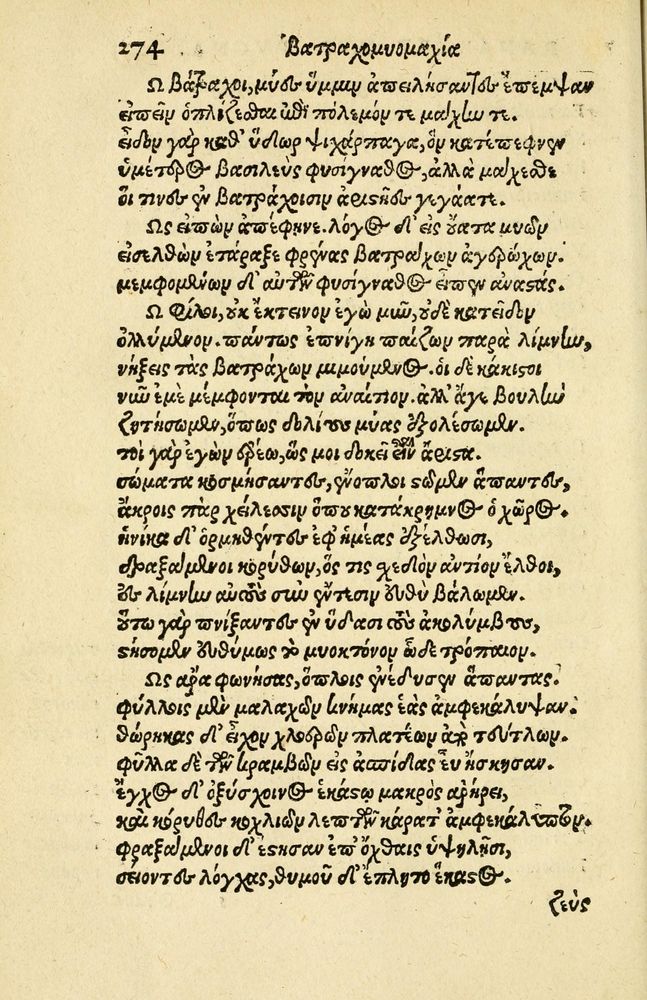 274 Βατραχομυομαχία
Ω βάτραχοι, μύες ὔμμιν ἀπειλήσαντες ἔπεμψαν
εἰπεῖν ὁπλίζεσθαι ἐπὶ πόλεμόν τε μάχην τε.
εἶδον γὰρ καθ' ὕδωρ ψιχάρπαγα, ὃν κατέπεφνεν
ὑμέτερος βασιλεὺς φυσίγναθος, ἀλλὰ μάχεσθε
οἵ τινες ἐν βατράχοισιν ἀριστῆες γεγάατε.
Ως εἰπὼν ἀπέφηνε. λόγος δ' εἰς οὔατα μυῶν
εἰσελθὼν ἐτάραξε φρένας βατράχων ἀγερώχων.
μεμφομένων δ' αὐτῶν φυσίγναθος εἶπεν ἀναστάς.
Ω φίλοι, οὐκ ἔκτεινον ἐγὼ μῦν, οὐδὲ κατεῖδον
ὀλλύμενον. πάντως ἐπνίγη παίζων παρὰ λίμνην,
νήξεις τὰς βατράχων μιμούμενος. οἱ δὲ κάκιστοι
νῦν ἐμὲ μέμφονται τὸν ἀναίτιον. ἀλλ' ἄγε βουλὴν
ζητήσωμεν, ὅπως δολίους μύας ἐξολέσωμεν.
τοὶ γὰρ ἐγὼν ἐρέω, ὥς μοι δοκεῖ εἶναι ἄριστα.
σώματα κοσμήσαντες, ἐν ὅπλοις στῶμεν ἅπαντες,
ἄκροις πὰρ χείλεσιν ὅπου κατάκρημνος ὁ χῶρος.
ἡνίκα δ' ὁρμηθέντες ἐφ' ἡμέας ἐξέλθωσι,
δραξάμενοι κορύθων, ὅς τις σχεδὸν ἀντίον ἔλθοι,
ἐς λίμνην αὐτοὺς σὺν ἔντεσιν εὐθὺ βάλωμεν.
οὕτω γὰρ πνίξαντες ἐν ὕδασι τοὺς ἀκολύμβους,
στήσομεν εὐθύμως τὸ μυοκτόνον ὧδε τρόπαιον.
Ως ἄρα φωνήσας, ὅπλοις ἐνέδυσεν ἅπαντας.
φύλλοις μὲν μαλαχῶν κνήμας ἑὰς ἀμφεκάλυψαν.
θώρηκας δ' εἶχον χλοερῶν πλατέων ἀπὸ τεύτλων.
φῦλλα δὲ τῶν κραμβῶν εἰς ἀσπίδας εὖ ἤσκησαν.
ἔγχος δ' ὀξύσχοινος ἑκάστῳ μακρὸς ἀρήρει,
καὶ κόρυθες κοχλιῶν λεπτῶν κάρατ' ἀμφεκάλυπτον.
φραξάμενοι δ' ἔστησαν ἐπ' ὄχθαις ὑψηλῇσι,
σείοντες λόγχας, θυμοῦ δ' ἔπλητο ἕκαστος.
ζεὺς